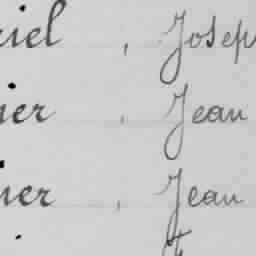 riel , Joseph
ier , Jean
ier , Jean